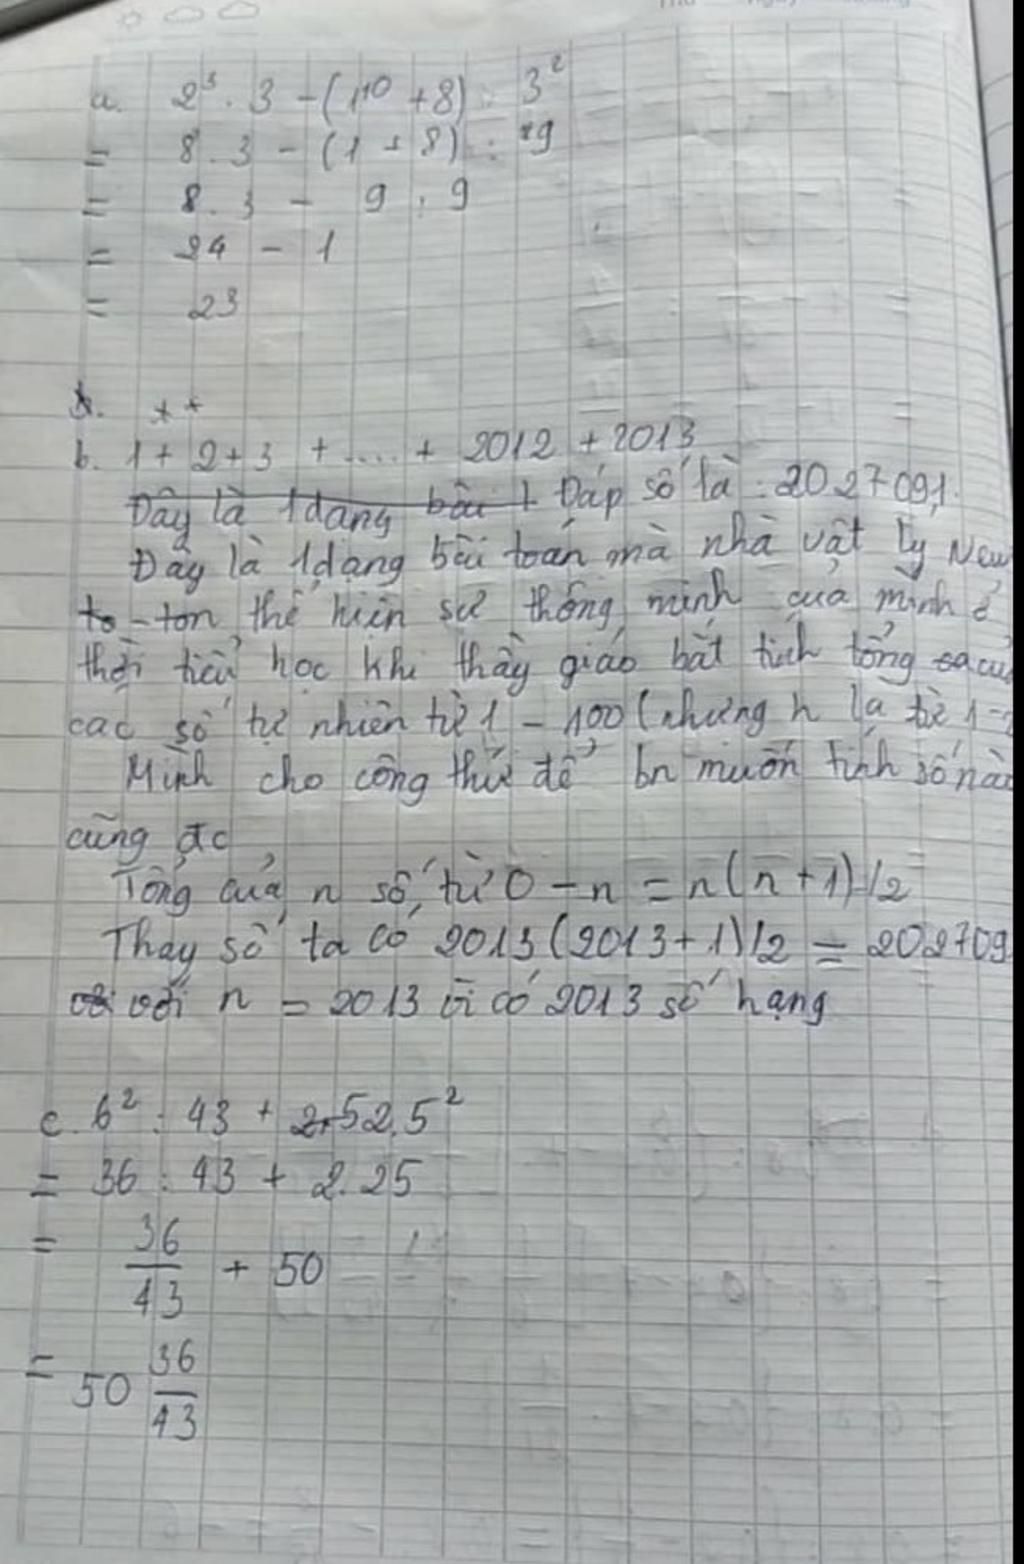 a. 2³ . 3 - (1¹⁰ + 8) : 3²
= 8 . 3 - (1 + 8) : 9
= 8 . 3 - 9 : 9
= 24 - 1
= 23
b. 1 + 2 + 3 + .... + 2012 + 2013
Đây là 1 dạng bài t Đáp số là : 2027091.
Đây là 1 dạng bài toán mà nhà vật lý New
to-ton thể hiện sự thông minh của mình ở
thời tiểu học khi thầy giáo bắt tính tổng
các số tự nhiên từ 1 - 100 (nhưng h là từ 1-
Mình cho công thức để bn muốn tính số nà
cũng đc
Tổng của n số từ 0 - n = n(n+1)/2
Thay số ta có 2013(2013+1)/2 = 202709
với n = 2013 vì có 2013 số hạng
c. 6² : 43 + 2.52.5²
= 36 : 43 + 2.25
= 36/43 + 50
= 50 36/43